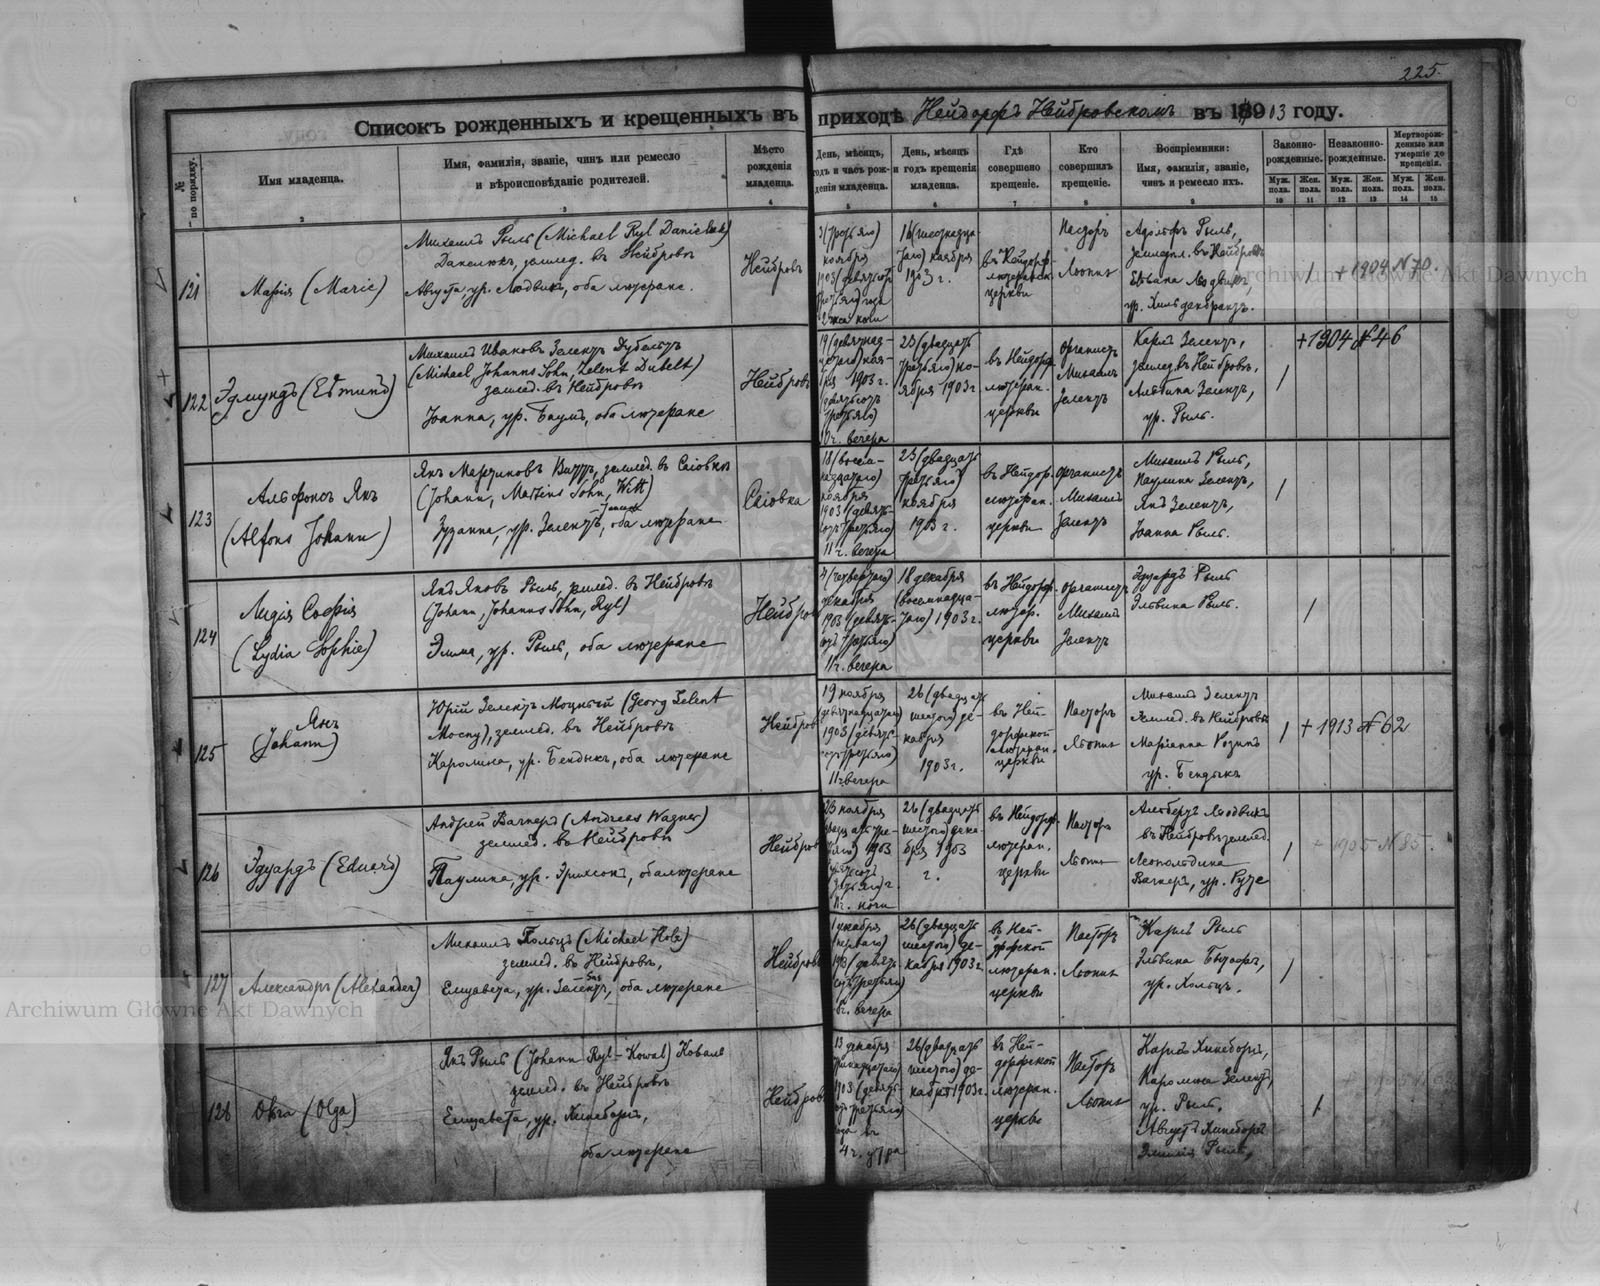 225.
Списокъ рожденныхъ и крещенныхъ въ приходѣ Нейдорфъ Нейбровскомъ въ 1903 году.
№ по порядку.
Имя младенца.
Имя, фамилія, званіе, чинъ или ремесло
и вѣроисповѣданіе родителей.
Мѣсто
рожденія
младенца.
День, мѣсяцъ,
годъ и часъ рож-
денія младенца.
День, мѣсяцъ
и годъ крещенія
младенца.
Гдѣ
совершено
крещеніе.
Кто
совершилъ
крещеніе.
Воспріемники:
Имя, фамилія, званіе,
чинъ и ремесло ихъ.
Законно-
рожденные.
Незаконно-
рожденные.
Мертворож-
денные или
умершіе до
крещенія.
Муж. пола.
Жен. пола.
Муж. пола.
Жен. пола.
Муж. пола.
Жен. пола.
2 3 4 5 6 7 8 9 10 11 12 13 14 15
121
Марія (Marie)
Михаилъ Рыль (Michael Ryl Danieluk)
Данелюкъ, землед. въ Нейбровѣ
Августа, ур. Людвигъ, оба лютеране.
Нейбровъ
3 (третьяго)
ноября
1903 (девятьсотъ
третьяго) года
2 часа ночи
16 (шестнадца-
таго) ноября
1903 г.
въ Нейдорф.
лютеранск.
церкви
Пасторъ
Льонпа
Адольфъ Рыль,
землед. въ Нейбровѣ
Людвигъ,
ур. Хильдебрандъ.
1
+ 1904 N 70.
122
Эдмундъ (Edmund)
Михаилъ Ивановъ Зелентъ Дубельтъ
(Michael, Johanns Sohn, Zelent Dubelt)
землед. въ Нейбровѣ
Іоанна, ур. Баумъ, оба лютеране
Нейбровъ
19 (девятнад-
цатаго) ноя-
бря 1903 г.
(девятьсотъ
третьяго)
10 ч. вечера
23 (двадцать
третьяго) но-
ября 1903 г.
въ Нейдорф.
лютеран.
церкви
органистъ
Михаилъ
Зелентъ
Карлъ Зелентъ,
землед. въ Нейбровѣ,
Альбина Зелентъ,
ур. Рыль.
1
+ 1904 N 46
123
Альфонсъ Янъ
(Alfons Johann)
Янъ Мартиновъ Виттъ, землед. въ Сліовкѣ
(Johann, Martins Sohn, Witt)
Зузанна, ур. Зелентъ, оба лютеране
Сліовка
18 (восем-
надцатаго)
ноября
1903 (девять-
сотъ третьяго)
11 ч. вечера
23 (двадцать
третьяго)
ноября
1903 г.
въ Нейдор.
лютеран.
церкви
органистъ
Михаилъ
Зелентъ
Михаилъ Рыль,
Паулина Зелентъ,
Янъ Зелентъ,
Іоанна Рыль.
1
124
Лидія Софія
(Lydia Sophie)
Янъ Яновъ Рыль, землед. въ Нейбровѣ
(Johann, Johanns Sohn, Ryl)
Эмма, ур. Рыль, оба лютеране
Нейбровъ
4 (четвертаго)
декабря
1903 (девять-
сотъ третьяго)
11 ч. вечера
18 декабря
(восемнадца-
таго) 1903 г.
въ Нейдорф.
лютер.
церкви
органистъ
Михаилъ
Зелентъ
Эдуардъ Рыль
Эльвина Рыль.
1
125
Янъ
(Johann)
Юрій Зелентъ Моцный (Georg Zelent
Mocny), землед. въ Нейбровѣ
Каролина, ур. Бендыкъ, оба лютеране
Нейбровъ
19 ноября
(девятнадцатаго)
1903 (девять-
сотъ третьяго)
11 ч. вечера
26 (двадцать
шестого) де-
кабря
1903 г.
въ Ней-
дорфской
лютеран.
церкви
Пасторъ
Льонпа
Михаилъ Зелентъ
землед. въ Нейбровѣ
Маріанна Розинъ
ур. Бендыкъ
1
+ 1913 N 62
126
Эдуардъ (Eduard)
Андрей Вагнеръ (Andreas Wagner)
землед. въ Нейбровѣ
Паулина, ур. Эриксонъ, оба лютеране
Нейбровъ
23 ноября
(двадцать тре-
тяго) 1903
г. ночи
26 (двадцать
шестого) дека-
бря 1903
г.
въ Нейдорф.
лютеран.
церкви
Пасторъ
Льонпа
Альбертъ Людвигъ
въ Нейбровѣ землед.
Леопольдина
Вагнеръ, ур. Рутс
1
+ 1905 N 85.
127
Александръ (Alexander)
Михаилъ Гольцъ (Michael Holz)
землед. въ Нейбровѣ,
Елизавета, ур. Зелентъ, оба лютеране
Нейбровъ
1 декабря
(перваго)
1903 (девять-
сотъ третьяго)
6 ч. вечера
26 (двадцать
шестого) де-
кабря 1903 г.
въ Ней-
дорфской
лютеран.
церкви
Пасторъ
Льонпа
Карлъ Рыль
Эльвина
ур. Хольцъ.
1
128
Ольга (Olga)
Янъ Рыль (Johann Ryl-Kowal) Коваль
землед. въ Нейбровѣ
Елизавета, ур. Хинеборгъ,
оба лютеране
Нейбровъ
13 декабря
(тринадцатаго)
1903 (девять-
сотъ третьяго)
года въ
4 ч. утра
26 (двадцать
шестого) де-
кабря 1903 г.
въ Ней-
дорфской
лютеран.
церкви
Пасторъ
Льонпа
Карлъ Хинеборгъ,
Каролина Зелентъ,
ур. Рыль,
Августъ Хинеборгъ
Эмилія Рыль,
1
Archiwum Główne Akt Dawnych
Archiwum Główne Akt Dawnych